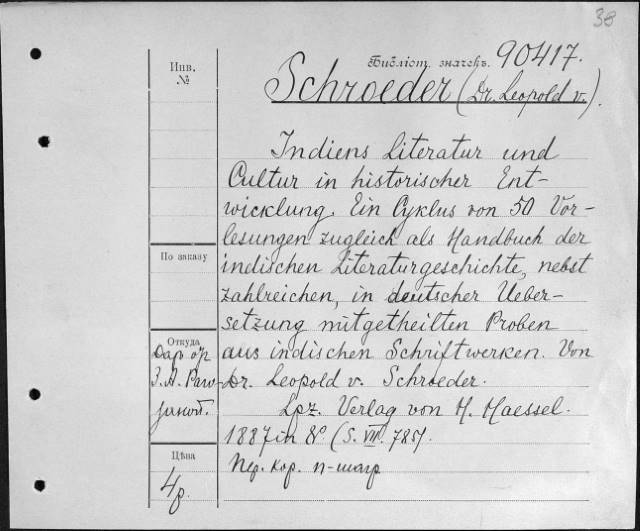 38
Библіот. значекъ. 90417.
Schroeder (Dr. Leopold v.).
Indiens Literatur und
Cultur in historischer Ent-
wicklung. Ein Cyklus von 50 Vor-
lesungen zugleich als Handbuch der
indischen Literaturgeschichte, nebst
zahlreichen, in deutscher Ueber-
setzung mitgetheilten Proben
aus indischen Schriftwerken. Von
Dr. Leopold v. Schroeder.
Lpz. Verlag von H. Haessel.
1887 in 8º. (S. VIII. 785).
Пер. кор. п-шагр
Инв.
№
По заказу
Откуда
Даръ отъ
З. А.
Цѣна
4 р.